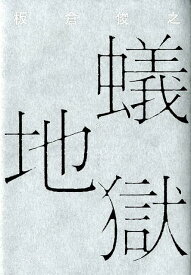 板倉俊之
蟻地獄